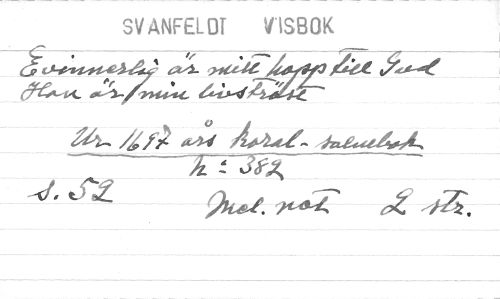 SVANFELDT VISBOK
Evinnerlig är mitt hopp till Gud
Han är min livströst
Ur 1697 års koral-salmebok
n: 382
s. 52
Mel. not 2 str.